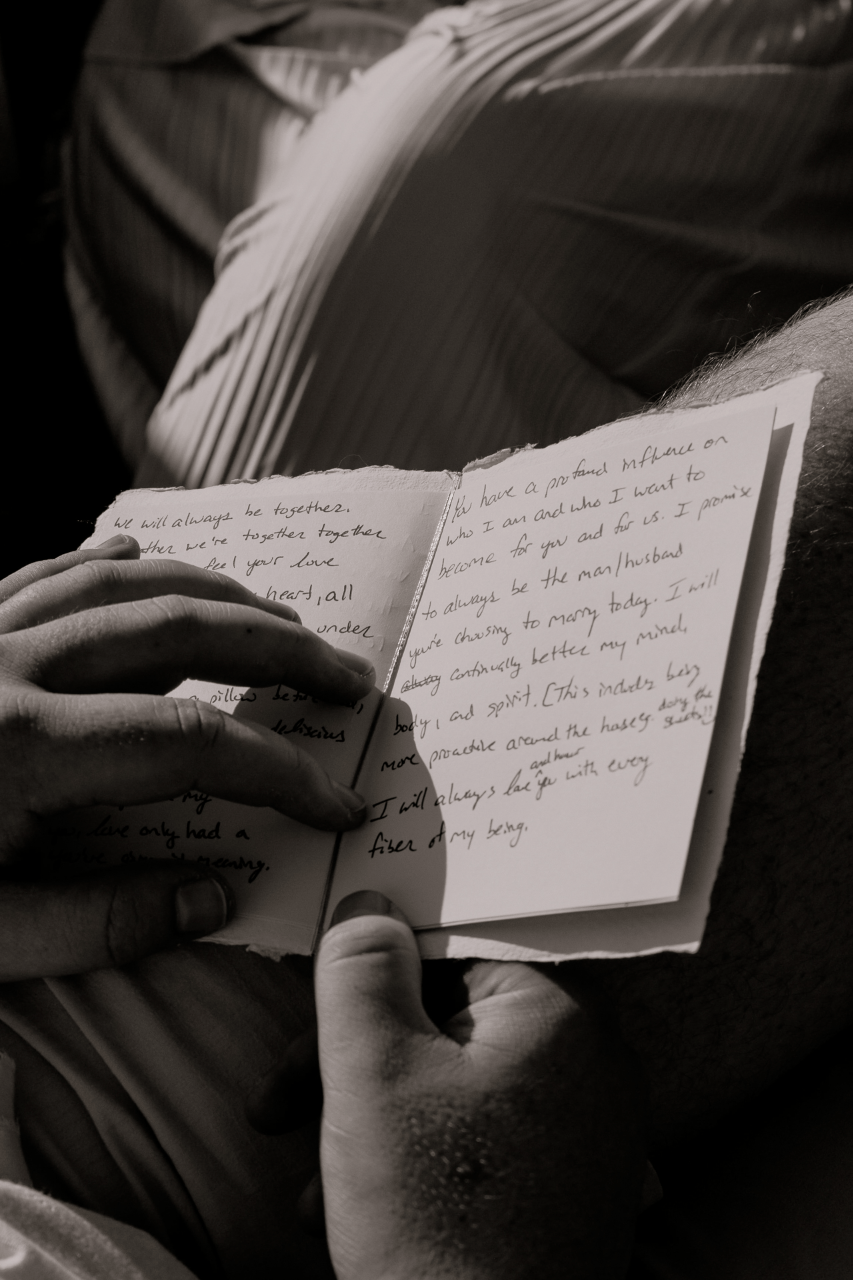 we will always be together.
we're together together
feel your love
heart, all
under
pillow
delicious
my
love only had a
meaning.
You have a profound influence on
who I am and who I want to
become for you and for us. I promise
to always be the man/husband
you're choosing to marry today. I will
continually better my mind,
body, and spirit. [This includes being
more proactive around the house,
doing the
and honor
I will always love you with every
fiber of my being.